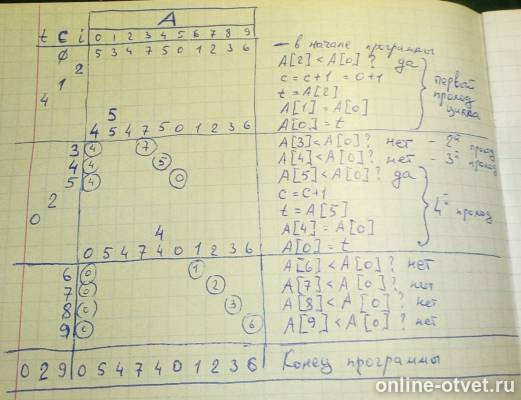 A
t c i 0 1 2 3 4 5 6 7 8 9
0 5 3 4 7 5 0 1 2 3 6 — в начале программы
2 A[2] < A[0] ? да
1 c = c+1 = 0+1
4 t = A[2]
5 A[1] = A[0]
4 5 4 7 5 0 1 2 3 6 A[0] = t
первый проход цикла
3 4 7 A[3] < A[0] ? нет – 2й проход
4 4 5 A[4] < A[0] ? нет – 3й проход
5 4 0 A[5] < A[0] ? да
2 c = c+1
0 t = A[5]
4 A[4] = A[0]
0 5 4 7 4 0 1 2 3 6 A[0] = t
4й проход
6 0 1 A[6] < A[0] ? нет
7 0 2 A[7] < A[0] ? нет
8 0 3 A[8] < A[0] ? нет
9 0 6 A[9] < A[0] ? нет
0 2 9 0 5 4 7 4 0 1 2 3 6 Конец программы
online-otvet.ru